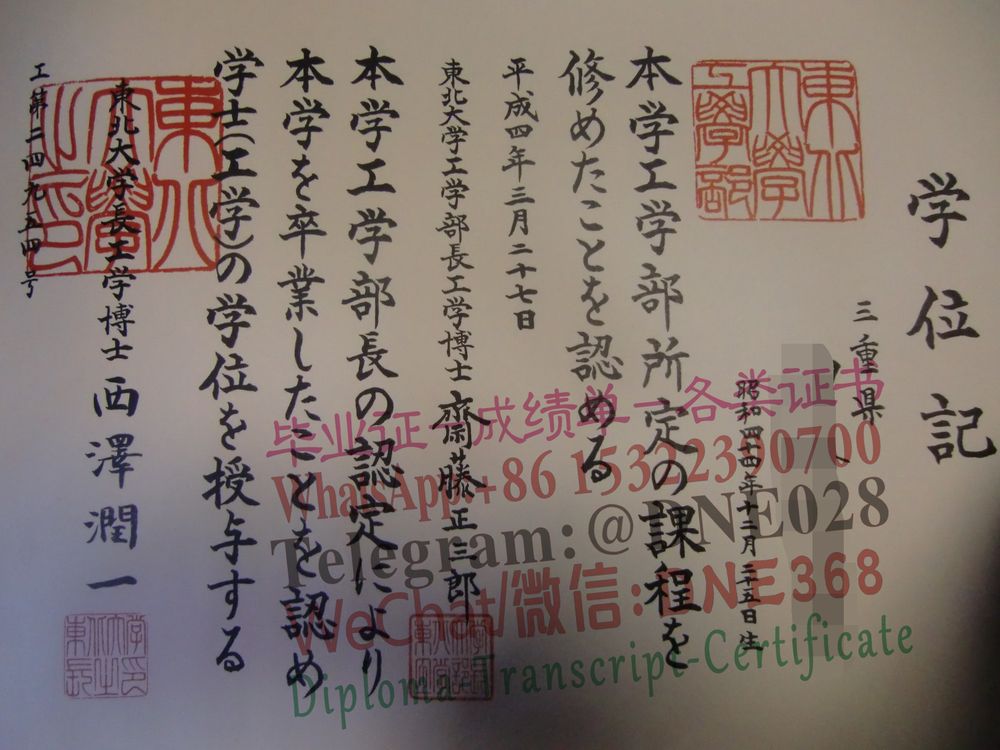 学位記
三重県
昭和四十四年十二月二十五日生
本学工学部所定の課程を
修めたことを認める
平成四年三月二十七日
東北大学工学部長工学博士 齋藤正三郎
本学工学部長の認定により
本学を卒業したことを認め
学士(工学)の学位を授与する
東北大学長工学博士 西澤潤一
工第二四九五四号
東北大學工學部
東北大學之印
毕业证－成绩单－各类证书
WhatsApp:+86 15322390700
Telegram:@ NE028
WeChat/微信: NE368
Diploma-Transcript-Certificate